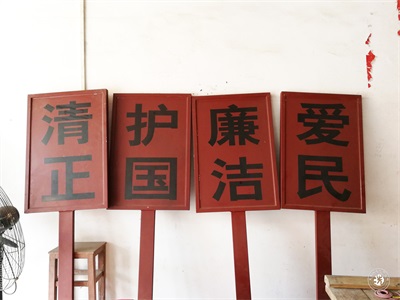 清正
护国
廉洁
爱民